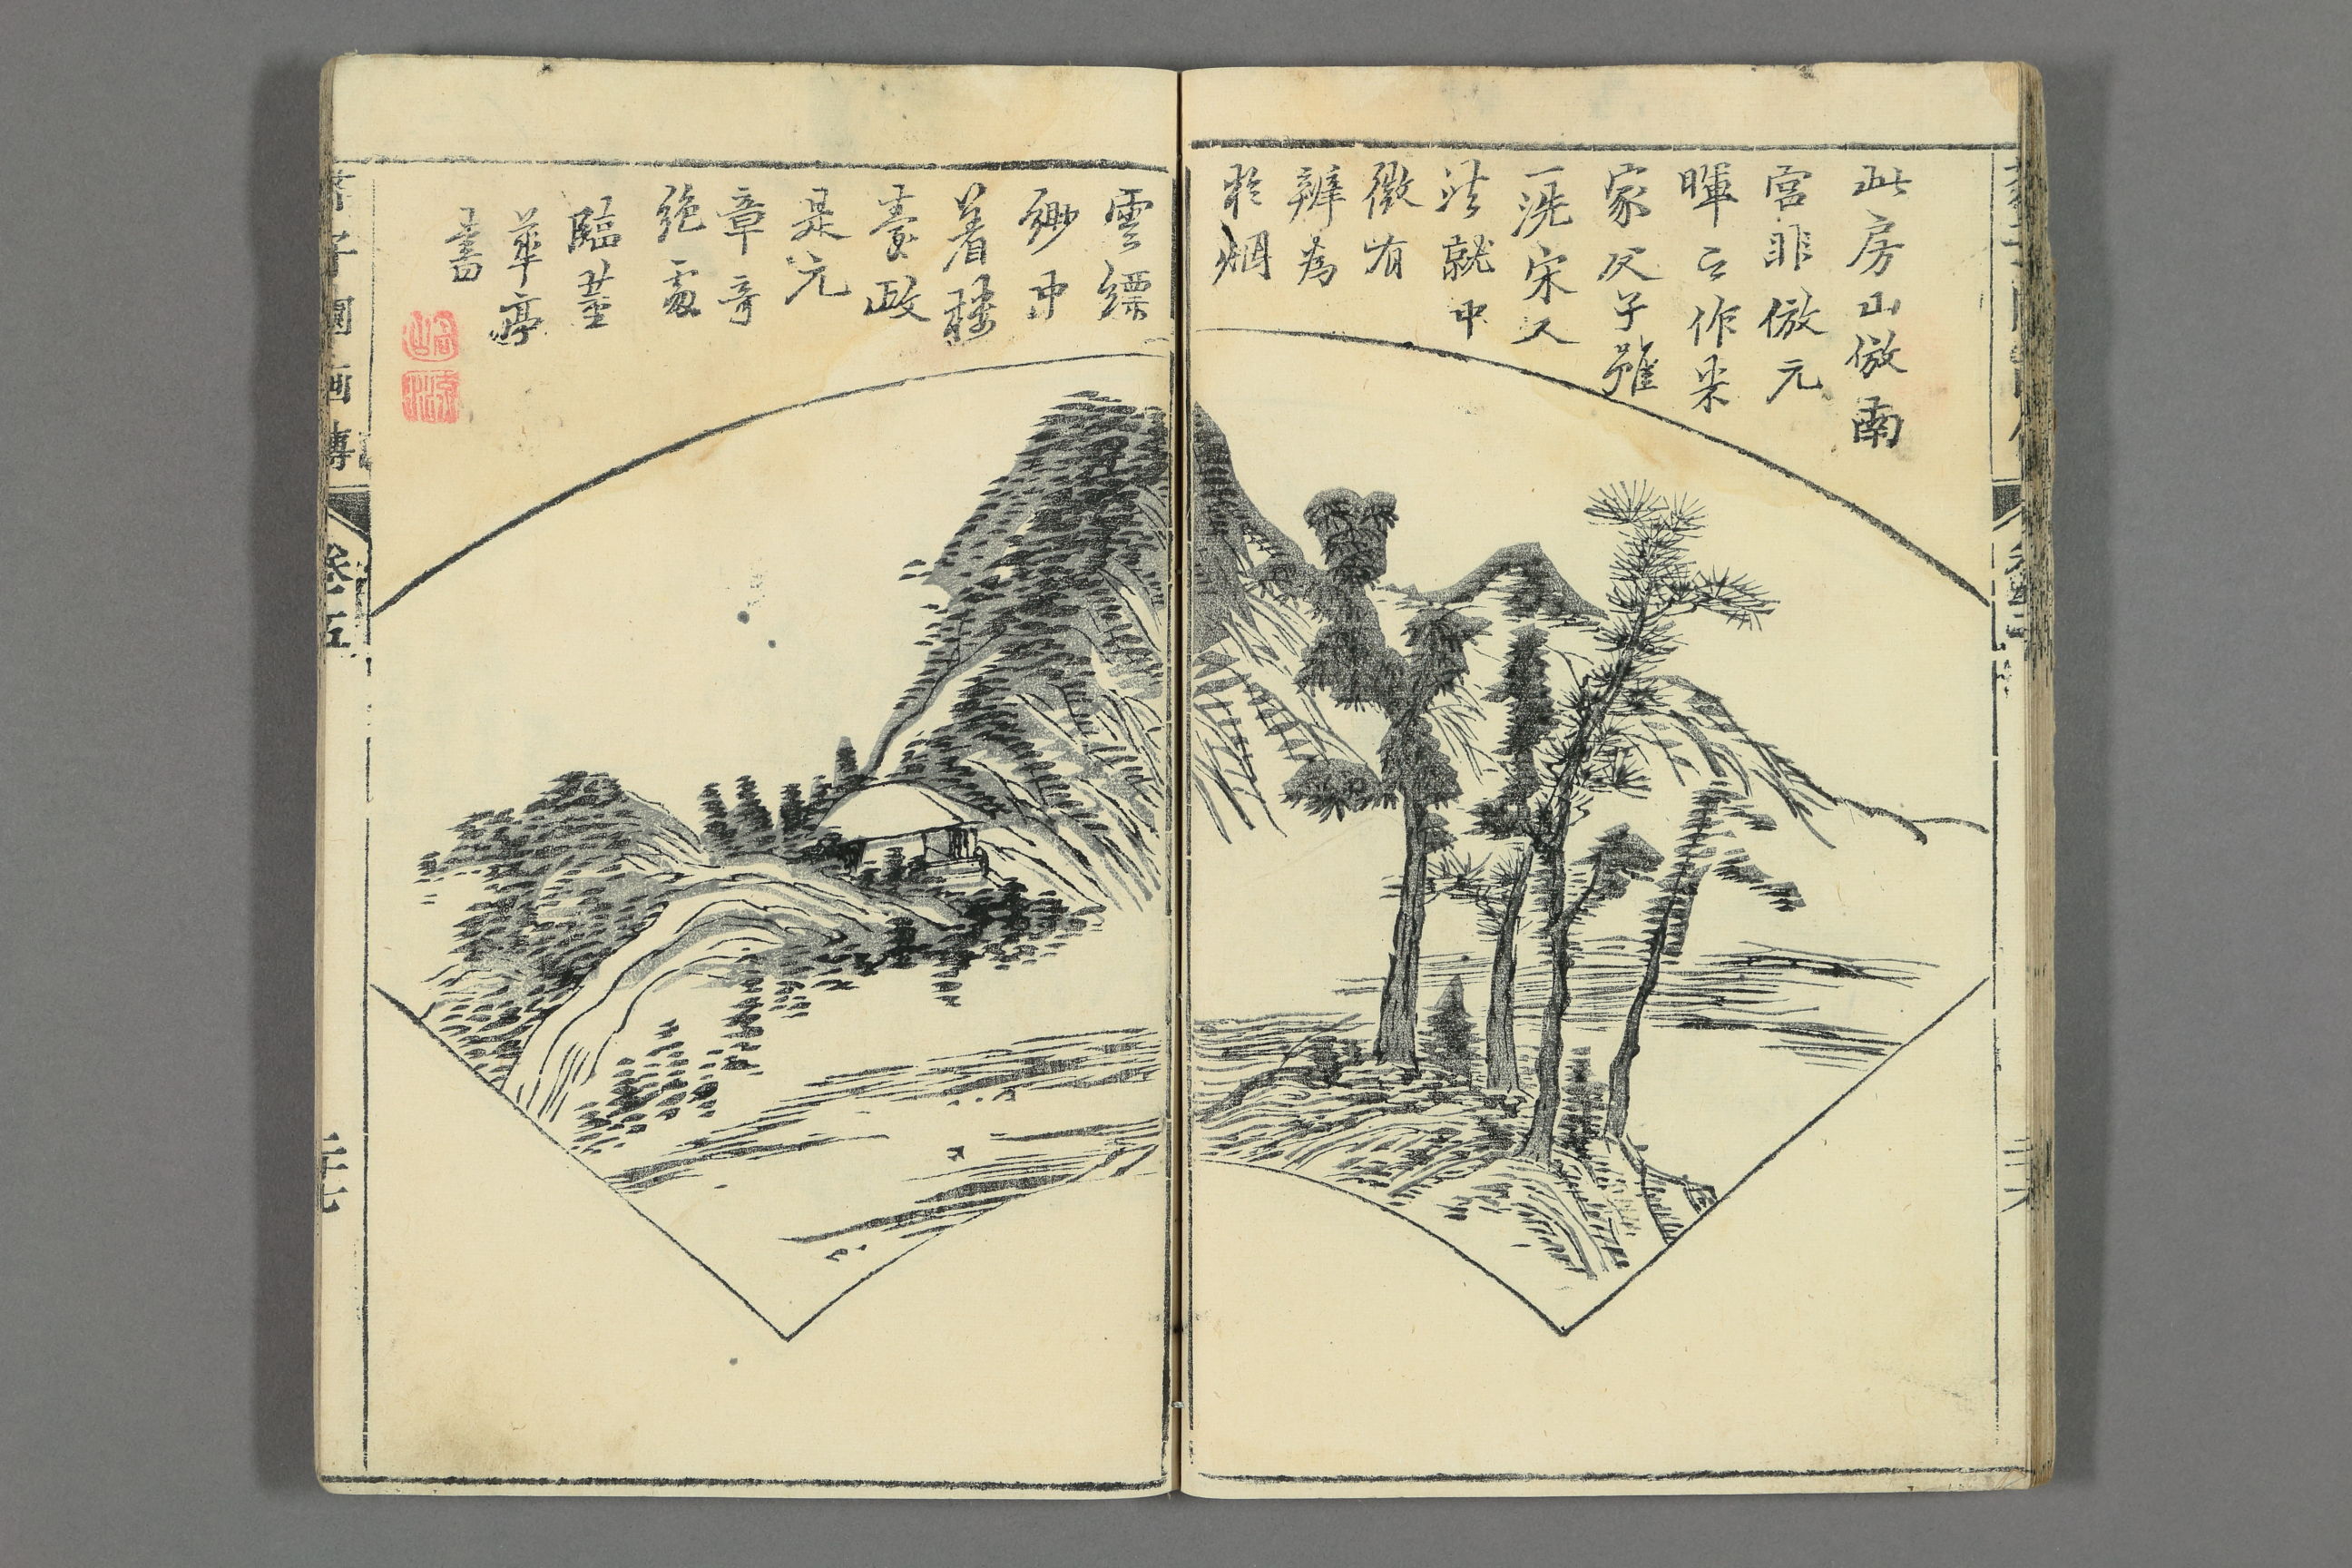 此房山倣南
宮非倣元
暉之作米
家父子雖
一洗宋人
法就中
微有
辨為
於烟
雲縹
緲中
着樓
臺政
是元
章奇
絕處
臨董
華亭
書
芥子園画傳
卷五
二十七